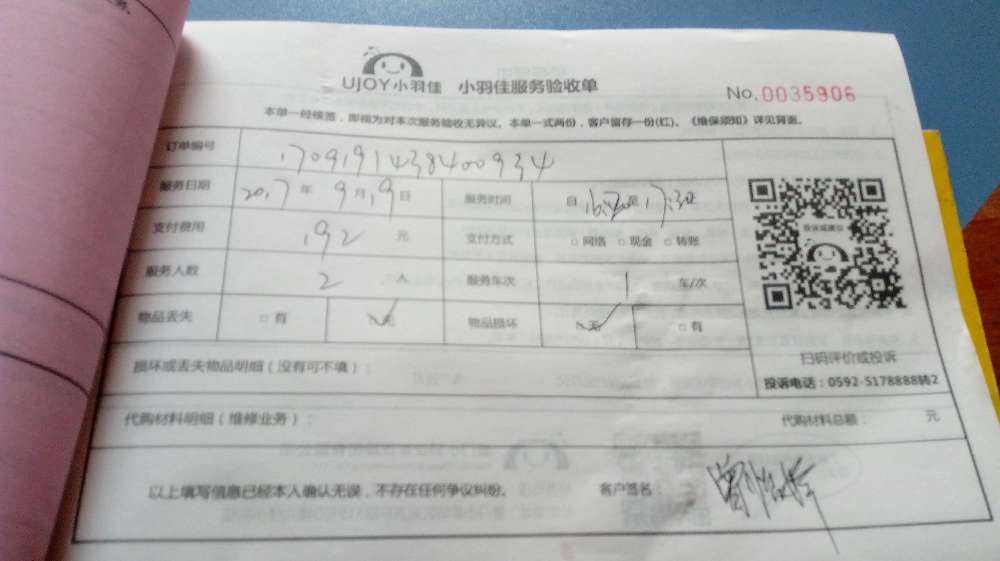 UJOY小羽佳 小羽佳服务验收单
No.0035906
本单一经核签，即视为对本次服务验收无异议。本单一式两份，客户留存一份(红)。《维保须知》详见背面。
订单编号 1709191438400934
服务日期 2017年9月19日 服务时间 自 至17:30
支付费用 192元 支付方式 □网络 □现金 □转账
服务人数 2人 服务车次 1车/次
物品丢失 □有 无 物品损坏 无 □有
投诉或建议
扫码评价或投诉
损坏或丢失物品明细（没有可不填）：
投诉电话：0592-5178888转2
代购材料明细（维修业务）： 代购材料总额： 元
以上填写信息已经本人确认无误，不存在任何争议纠纷。 客户签名：